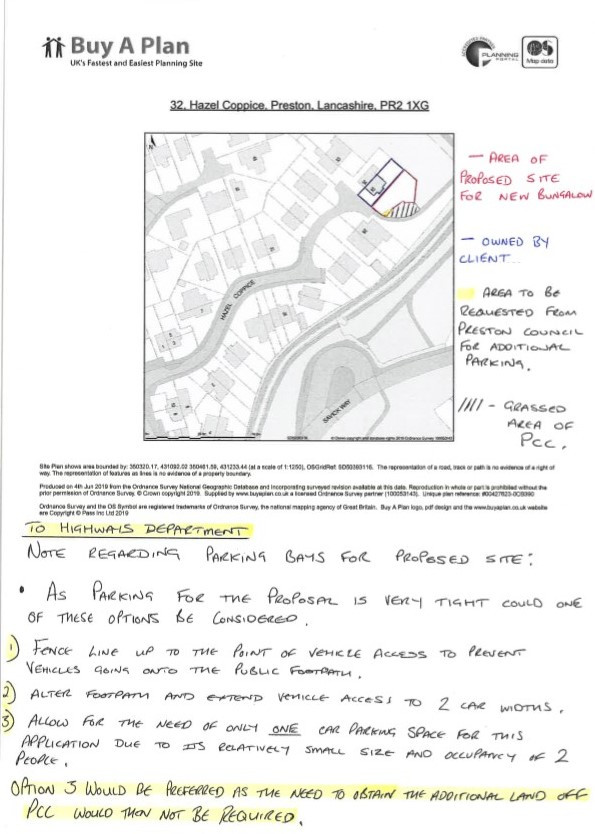 Buy A Plan
UK's Fastest and Easiest Planning Site
PLANNING
PORTAL
OS
Map data
32, Hazel Coppice, Preston, Lancashire, PR2 1XG
N
HAZEL COPPICE
SAVICK WAY
— AREA OF
PROPOSED SITE
FOR NEW BUNGALOW
— OWNED BY
CLIENT
AREA TO BE
REQUESTED FROM
PRESTON COUNCIL
FOR ADDITIONAL
PARKING.
//// - GRASSED
AREA OF
PCC.
Site Plan shows area bounded by: 360320.17, 431092.02 360461.59, 431233.44 (at a scale of 1:1250), OSGridRef: SD60393116. The representation of a road, track or path is no evidence of a right of
way. The representation of features as lines is no evidence of a property boundary.
Produced on 4th Jun 2019 from the Ordnance Survey National Geographic Database and incorporating surveyed revision available at this date. Reproduction in whole or part is prohibited without the
prior permission of Ordnance Survey. © Crown copyright 2019. Supplied by www.buyaplan.co.uk a licensed Ordnance Survey partner (100053143). Unique plan reference:
Ordnance Survey and the OS Symbol are registered trademarks of Ordnance Survey, the national mapping agency of Great Britain. Buy A Plan logo, pdf design and the www.buyaplan.co.uk website
are Copyright © Pass Inc Ltd 2019
TO HIGHWAYS DEPARTMENT
NOTE REGARDING PARKING BAYS FOR PROPOSED SITE:
• AS PARKING FOR THE PROPOSAL IS VERY TIGHT COULD ONE
OF THESE OPTIONS BE CONSIDERED.
1) FENCE LINE UP TO THE POINT OF VEHICLE ACCESS TO PREVENT
VEHICLES GOING ONTO THE PUBLIC FOOTPATH.
2) ALTER FOOTPATH AND EXTEND VEHICLE ACCESS TO 2 CAR WIDTHS.
3) ALLOW FOR THE NEED OF ONLY ONE CAR PARKING SPACE FOR THIS
APPLICATION DUE TO ITS RELATIVELY SMALL SIZE AND OCCUPANCY OF 2
PEOPLE.
OPTION 3 WOULD BE PREFERRED AS THE NEED TO OBTAIN THE ADDITIONAL LAND OFF
PCC WOULD THEN NOT BE REQUIRED.